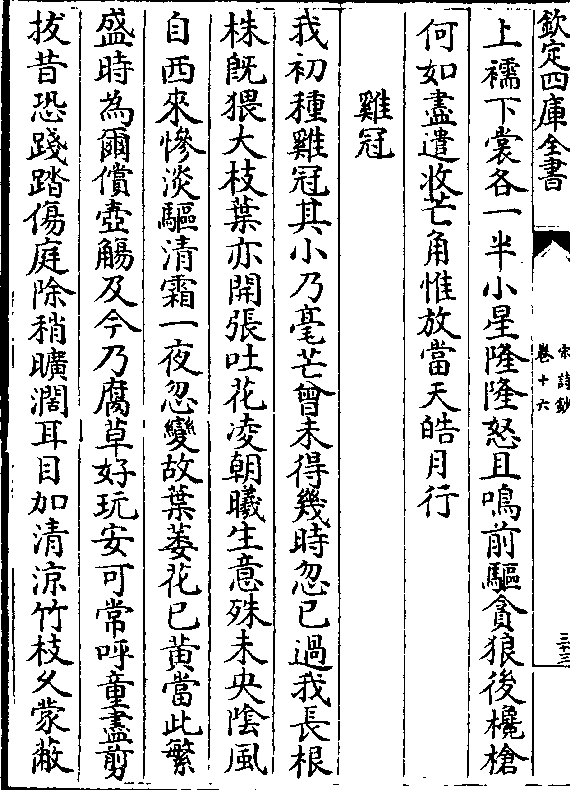 欽定四庫全書
宋詩鈔
卷十六
三十三
上襦下裳各一半小星隆隆怒且鳴前驅貪狼後欃槍
何如盡遣收芒角惟放當天皓月行
雞冠
我初種雞冠其小乃毫芒曾未得幾時忽已過我長根
株旣猥大枝葉亦開張吐花凌朝曦生意殊未央陰風
自西來慘淡驅清霜一夜忽變故葉萎花已黃當此繁
盛時為爾償壺觴及今乃腐草好玩安可常呼童盡剪
拔昔恐踐踏傷庭除稍曠濶耳目加清涼竹枝久蒙蔽